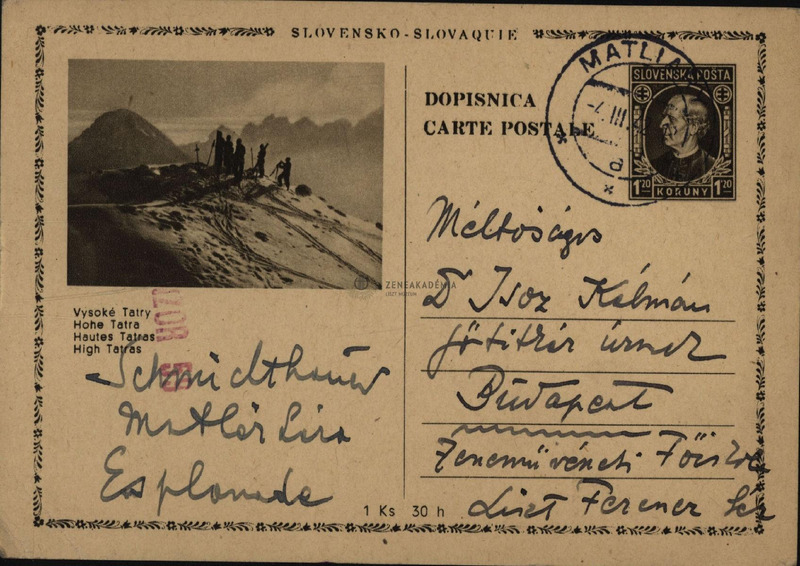 SLOVENSKO-SLOVAQUIE
DOPISNICA
CARTE POSTALE
MATLIA
-4. III. 4
a
SLOVENSKÁ POŠTA
1'20 KORUNY 1'20
ZENEAKADÉMIA
LISZT MÚZEUM
Vysoké Tatry
Hohe Tatra
Hautes Tatras
High Tatras
Méltóságos
Dr Isoz Kálmán
főtitkár úrnak
Budapest
Zeneművészeti Főisko
Liszt Ferenc tér
Schmidthauer
Matlár
Esplanade
1 Ks 30 h